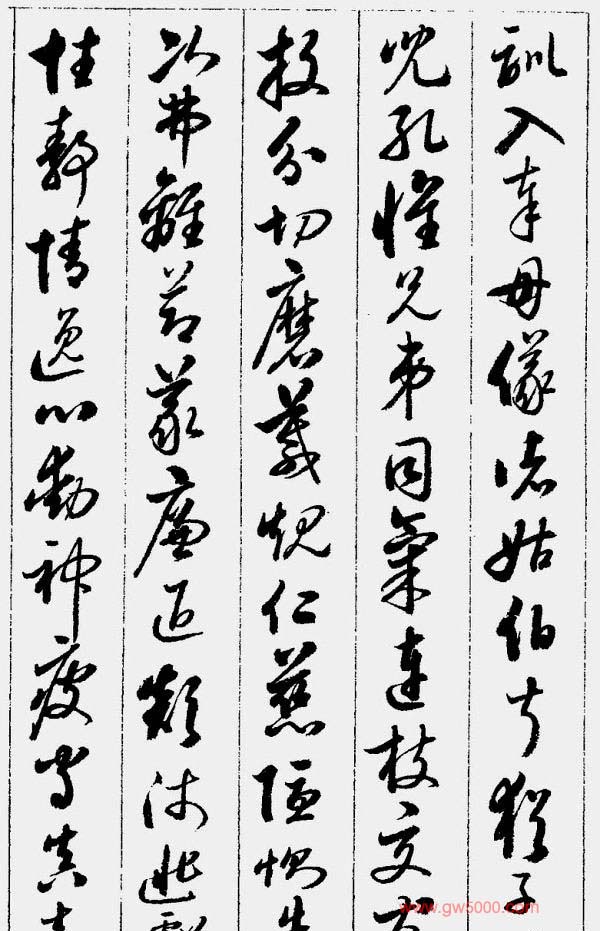 訓入奉母儀諸姑伯叔猶子
兒孔懷兄弟同氣連枝交友
投分切磨箴規仁慈隱惻造
次弗離節義廉退顛沛匪虧
性靜情逸心動神疲守真志
www.gw5000.com